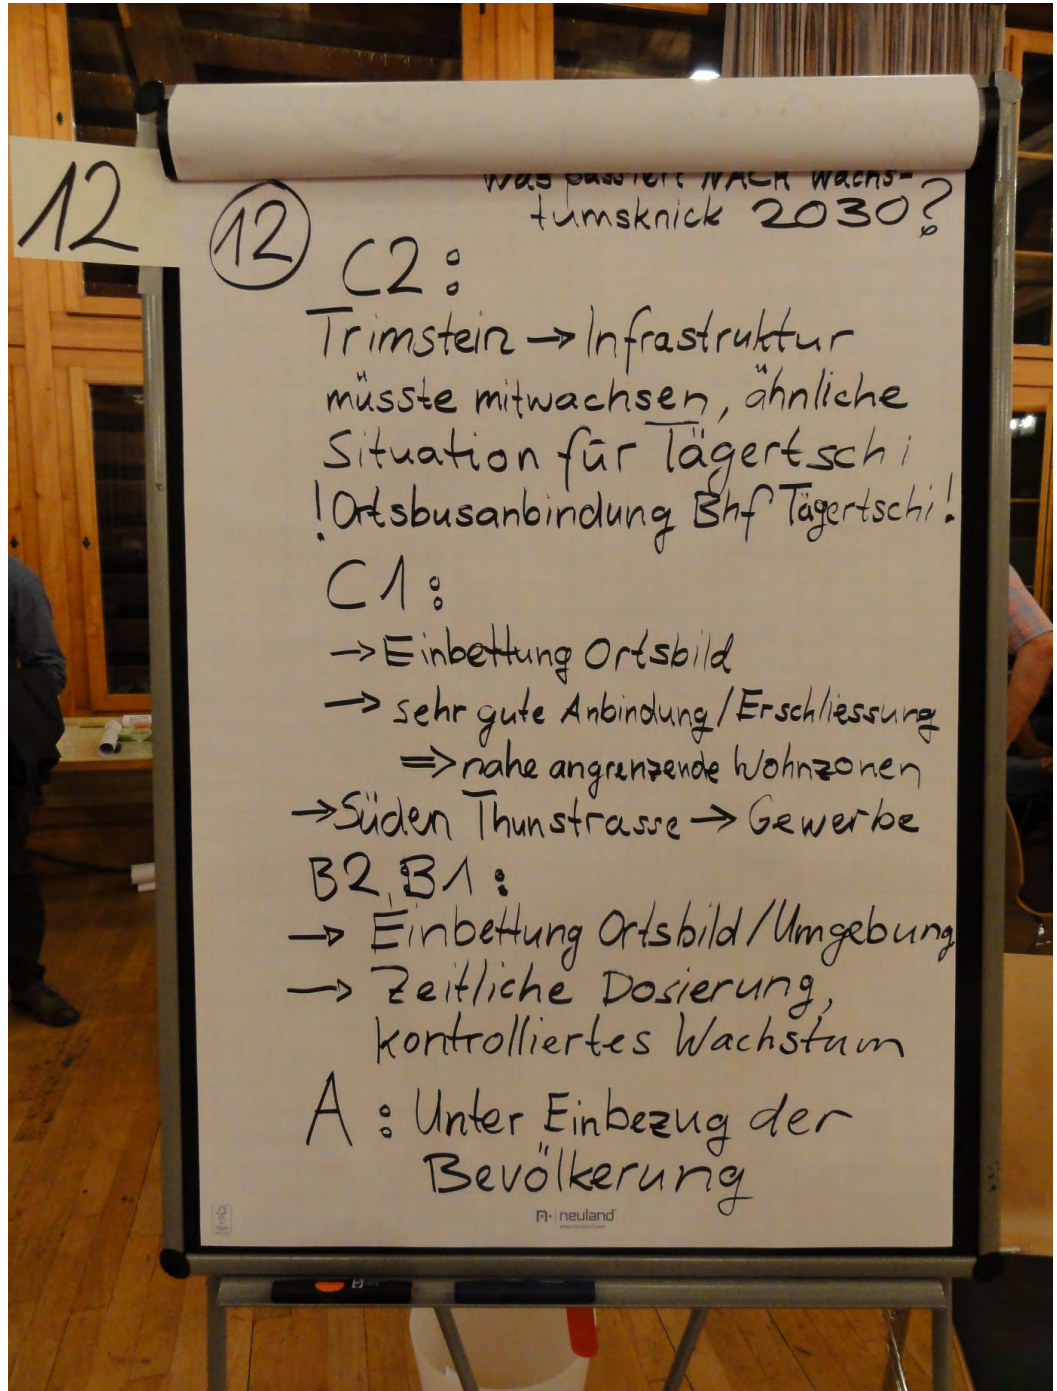 12
12
Was passiert NACH Wachs-
tumsknick 2030?
C2:
Trimstein → Infrastruktur
müsste mitwachsen, ähnliche
Situation für Tägertschi
! Ortsbusanbindung Bhf Tägertschi !
C1:
→ Einbettung Ortsbild
→ sehr gute Anbindung / Erschliessung
⇒ nahe angrenzende Wohnzonen
→ Süden Thunstrasse → Gewerbe
B2, B1:
→ Einbettung Ortsbild / Umgebung
→ Zeitliche Dosierung,
kontrolliertes Wachstum
A: Unter Einbezug der
Bevölkerung
neuland